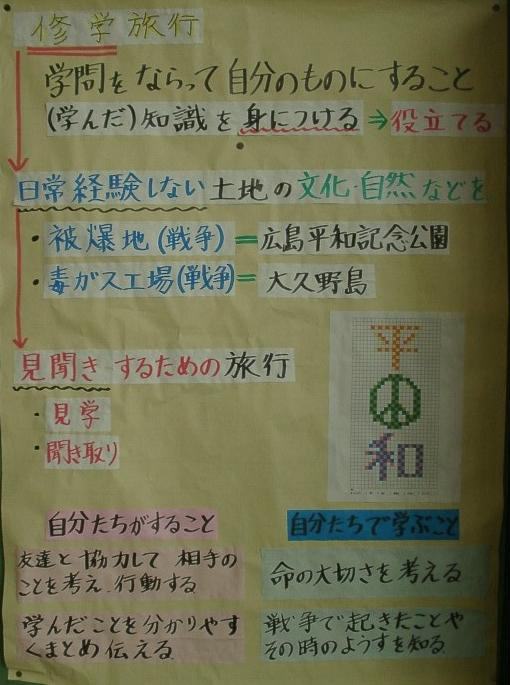 修学旅行
学問をならって自分のものにすること
(学んだ)知識を身につける⇒役立てる
日常経験しない土地の文化・自然などを
・被爆地(戦争)=広島平和記念公園
・毒ガス工場(戦争)=大久野島
見聞きするための旅行
・見学
・聞き取り
平
和
自分たちがすること
友達と協力して相手の
ことを考え、行動する
学んだことを分かりやす
くまとめ伝える
自分たちで学ぶこと
命の大切さを考える
戦争で起きたことや
その時のようすを知る